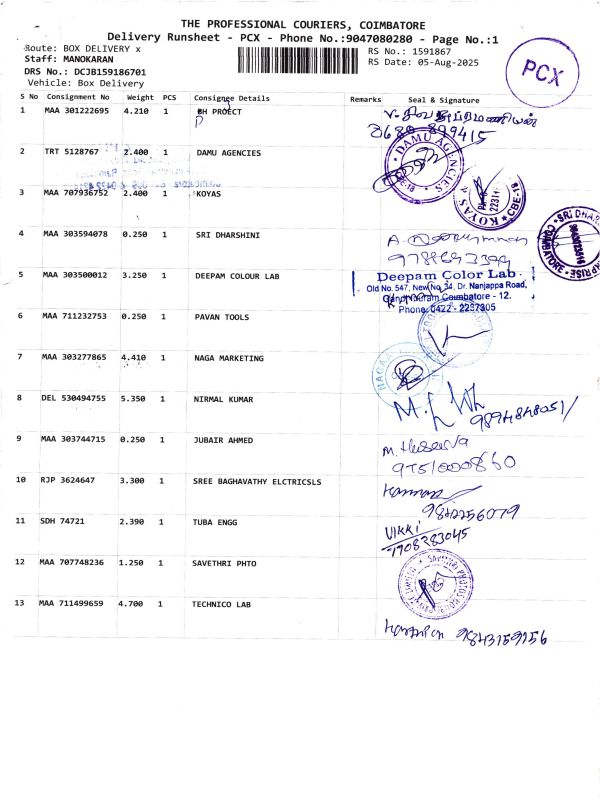 THE PROFESSIONAL COURIERS, COIMBATORE
Delivery Runsheet - PCX - Phone No.:9047080280 - Page No.:1
Route: BOX DELIVERY x
RS No.: 1591867
Staff: MANOKARAN
RS Date: 05-Aug-2025
DRS No.: DCJB159186701
Vehicle: Box Delivery
PCX
S No Consignment No Weight PCS Consignee Details Remarks Seal & Signature
1 MAA 301222695 4.210 1 BH PROECT
P
2 TRT 5128767 2.400 1 DAMU AGENCIES
DAMU AGENCIES
3 MAA 707936752 2.400 1 KOYAS
KOYAS CBE-18
4 MAA 303594078 0.250 1 SRI DHARSHINI
5 MAA 303500012 3.250 1 DEEPAM COLOUR LAB
Deepam Color Lab
Old No. 547, New No. 34, Dr. Nanjappa Road,
Gandhipuram Coimbatore - 12.
Phone: 0422 - 2237305
6 MAA 711232753 0.250 1 PAVAN TOOLS
7 MAA 303277865 4.410 1 NAGA MARKETING
8 DEL 530494755 5.350 1 NIRMAL KUMAR
9 MAA 303744715 0.250 1 JUBAIR AHMED
10 RJP 3624647 3.300 1 SREE BAGHAVATHY ELCTRICSLS
9842256079
11 SDH 74721 2.390 1 TUBA ENGG
VIKKI
7708383045
12 MAA 707748236 1.250 1 SAVETHRI PHTO
13 MAA 711499659 4.700 1 TECHNICO LAB
9843159156